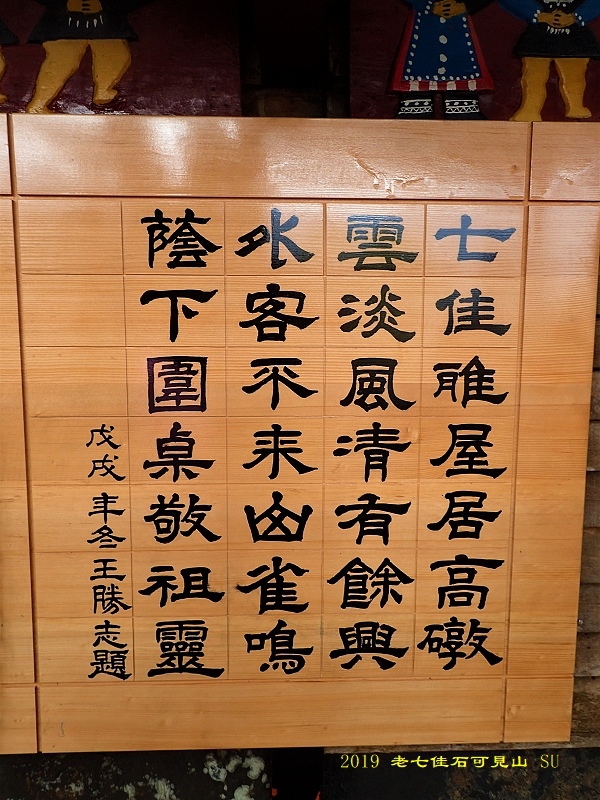 七佳雅屋居高礅
雲淡風清有餘興
外客不来山雀鳴
蔭下圍桌敬祖靈
戊戌年冬王勝志題
2019 老七佳石可見山 SU